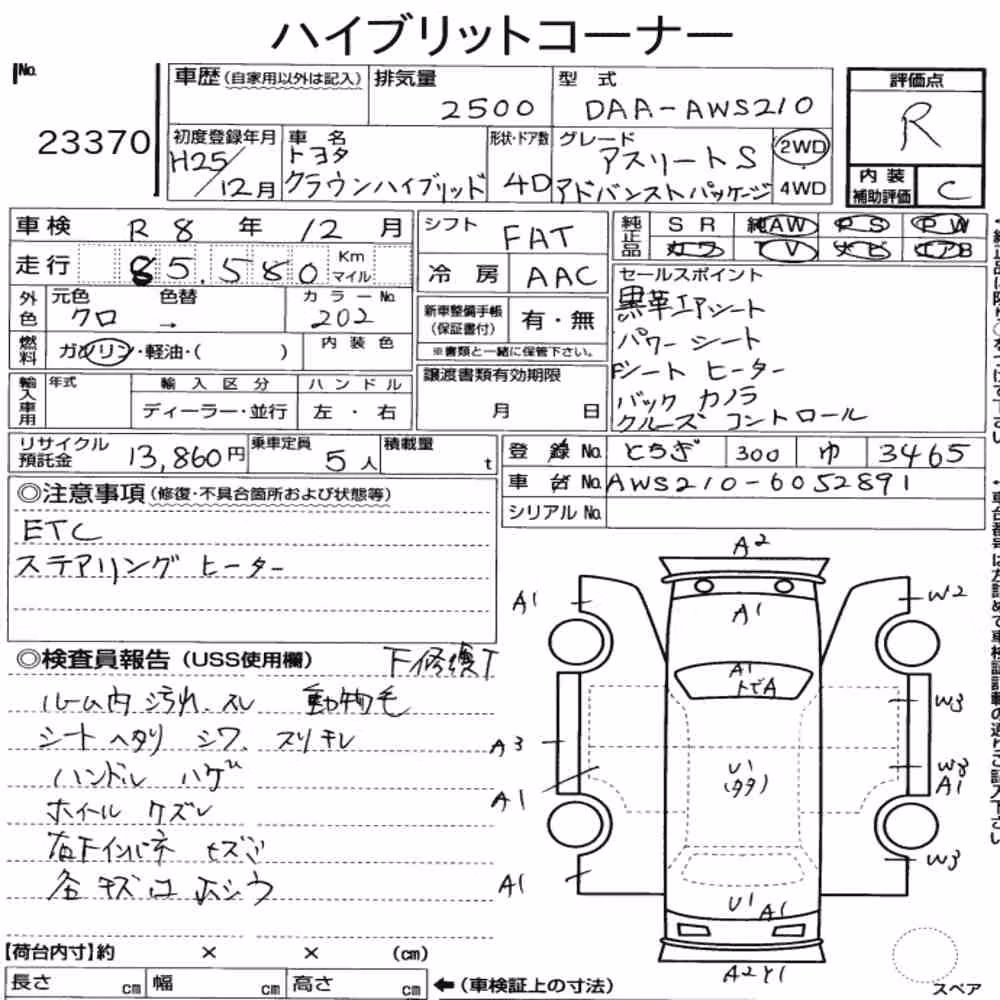 ハイブリットコーナー
No. 23370
車歴(自家用以外は記入)
排気量 2500
型式 DAA-AWS210
評価点 R
初度登録年月 H25/12月
車名 トヨタ クラウンハイブリッド
形状・ドア数 4D
グレード アスリートS アドバンストパッケージ
2WD
4WD
内装補助評価 C
車検 R8年 12月
シフト FAT
純正品 SR 純AW PS PW
カワ TV ナビ エアB
走行 85.580 Km マイル
冷房 AAC
セールスポイント
黒革エアシート
パワーシート
Fシートヒーター
バックカメラ
クルーズコントロール
外色 元色 クロ 色替 → カラーNo. 202
新車整備手帳(保証書付) 有・無
※書類と一緒に保管下さい。
燃料 ガソリン・軽油・( ) 内装色
譲渡書類有効期限 月 日
輸入車用 年式 輸入区分 ハンドル
ディーラー・並行 左・右
リサイクル預託金 13,860円 乗車定員 5人 積載量 t
登録No. とちぎ 300 ゆ 3465
車台No. AWS210-6052891
シリアルNo.
◎注意事項(修復・不具合箇所および状態等)
ETC
ステアリングヒーター
◎検査員報告(USS使用欄)
ルーム内汚れ.スレ 動物毛
シートヘタリ シワ. スリキレ
ハンドル ハゲ
ホイール ケズレ
A2
A1
A1
W2
A1
トビA
W3
A3
U1
W3
A1
A1
W3
A1
U1 A1
A2 Y1
スペア
【荷台内寸】約 × × (cm)
長さ cm 幅 cm 高さ cm ←(車検証上の寸法)